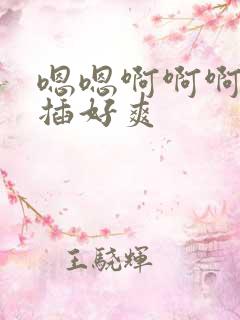 嗯嗯啊啊啊
插好爽
王驍輝